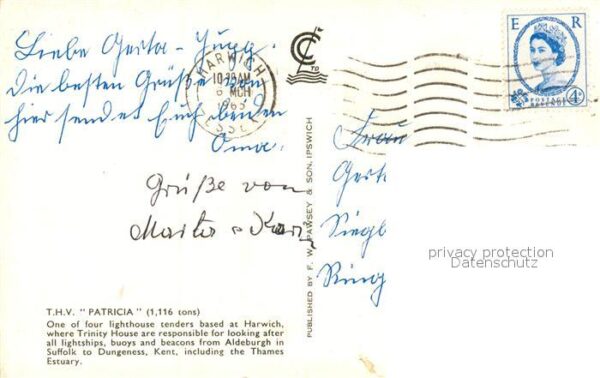 Liebe Gerta - Jupp.
Die besten Grüße von
hier sendet Euch beiden
Oma.
Grüße von
HARWICH
10-30AM
6 MCH
1965
ESSEX
E R
POSTAGE
REVENUE
4D
CC
LTD
PUBLISHED BY F. W. PAWSEY & SON, IPSWICH
Frau
Gerta
Siegb
Ring
privacy protection
Datenschutz
T.H.V. " PATRICIA " (1,116 tons)
One of four lighthouse tenders based at Harwich,
where Trinity House are responsible for looking after
all lightships, buoys and beacons from Aldeburgh in
Suffolk to Dungeness, Kent, including the Thames
Estuary.